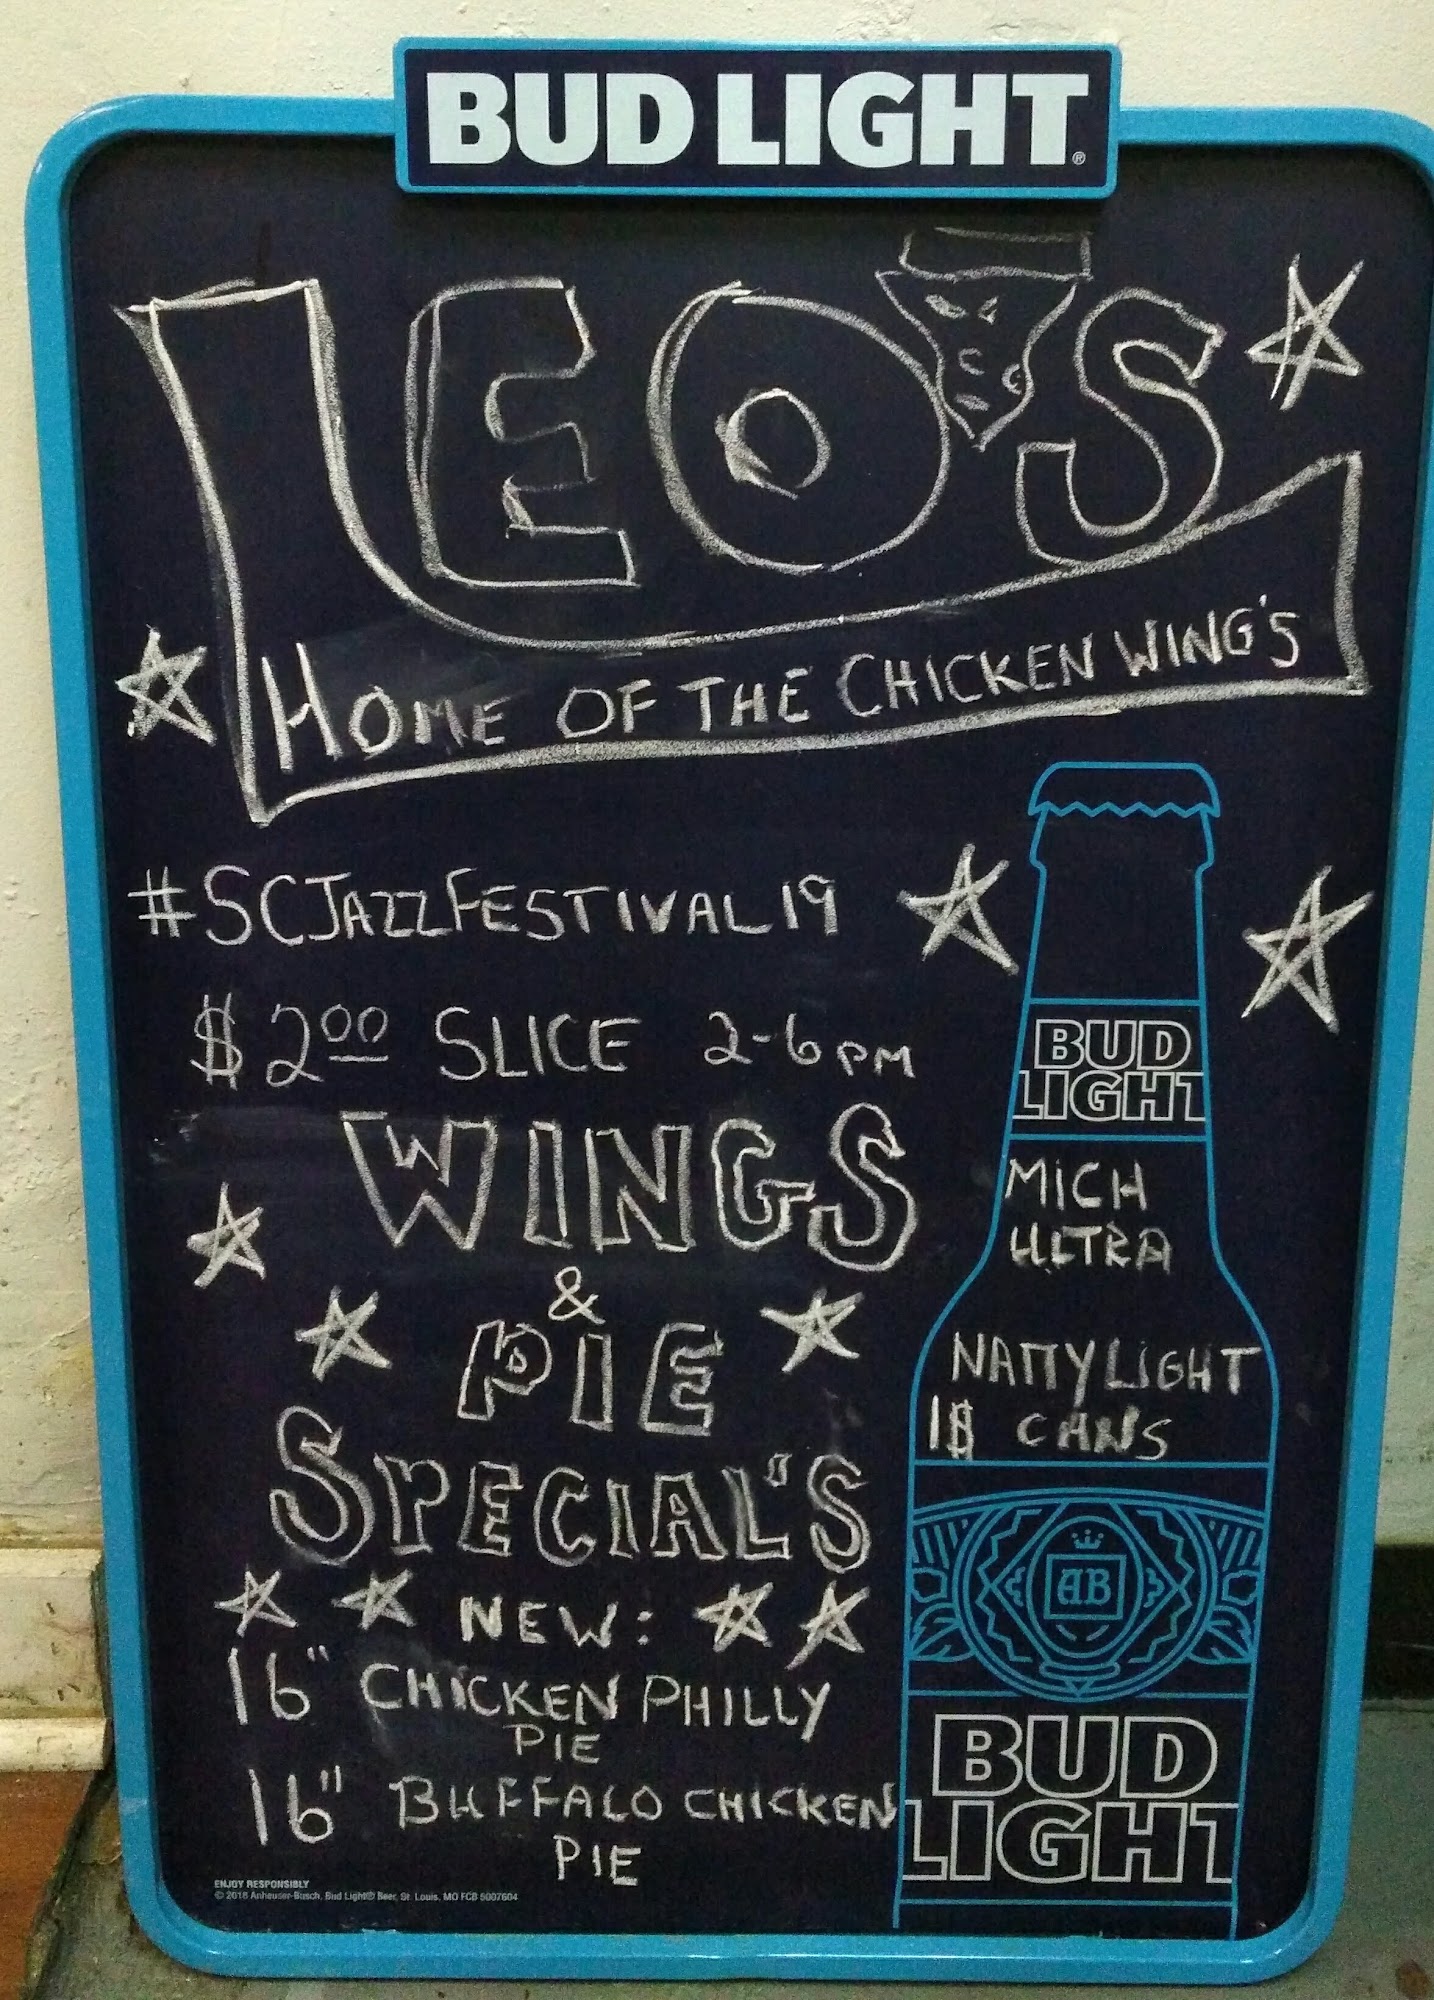 BUD LIGHT®
LEO'S
HOME OF THE CHICKEN WING'S
#SCJAZZFESTIVAL19
$200 SLICE 2-6PM
WINGS
&
PIE
SPECIAL'S
NEW:
16" CHICKEN PHILLY
PIE
16" BUFFALO CHICKEN
PIE
BUD
LIGHT
MICH
ULTRA
NATTY LIGHT
1$ CANS
AB
BUD
LIGHT
ENJOY RESPONSIBLY
© 2018 Anheuser-Busch, Bud Light® Beer, St. Louis, MO FCB 5007604